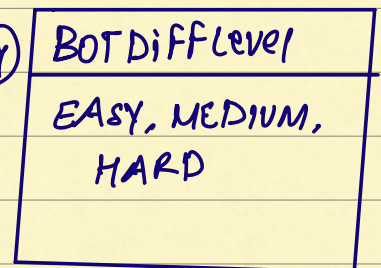 BOTDiffLevel
EASY, MEDIUM,
HARD